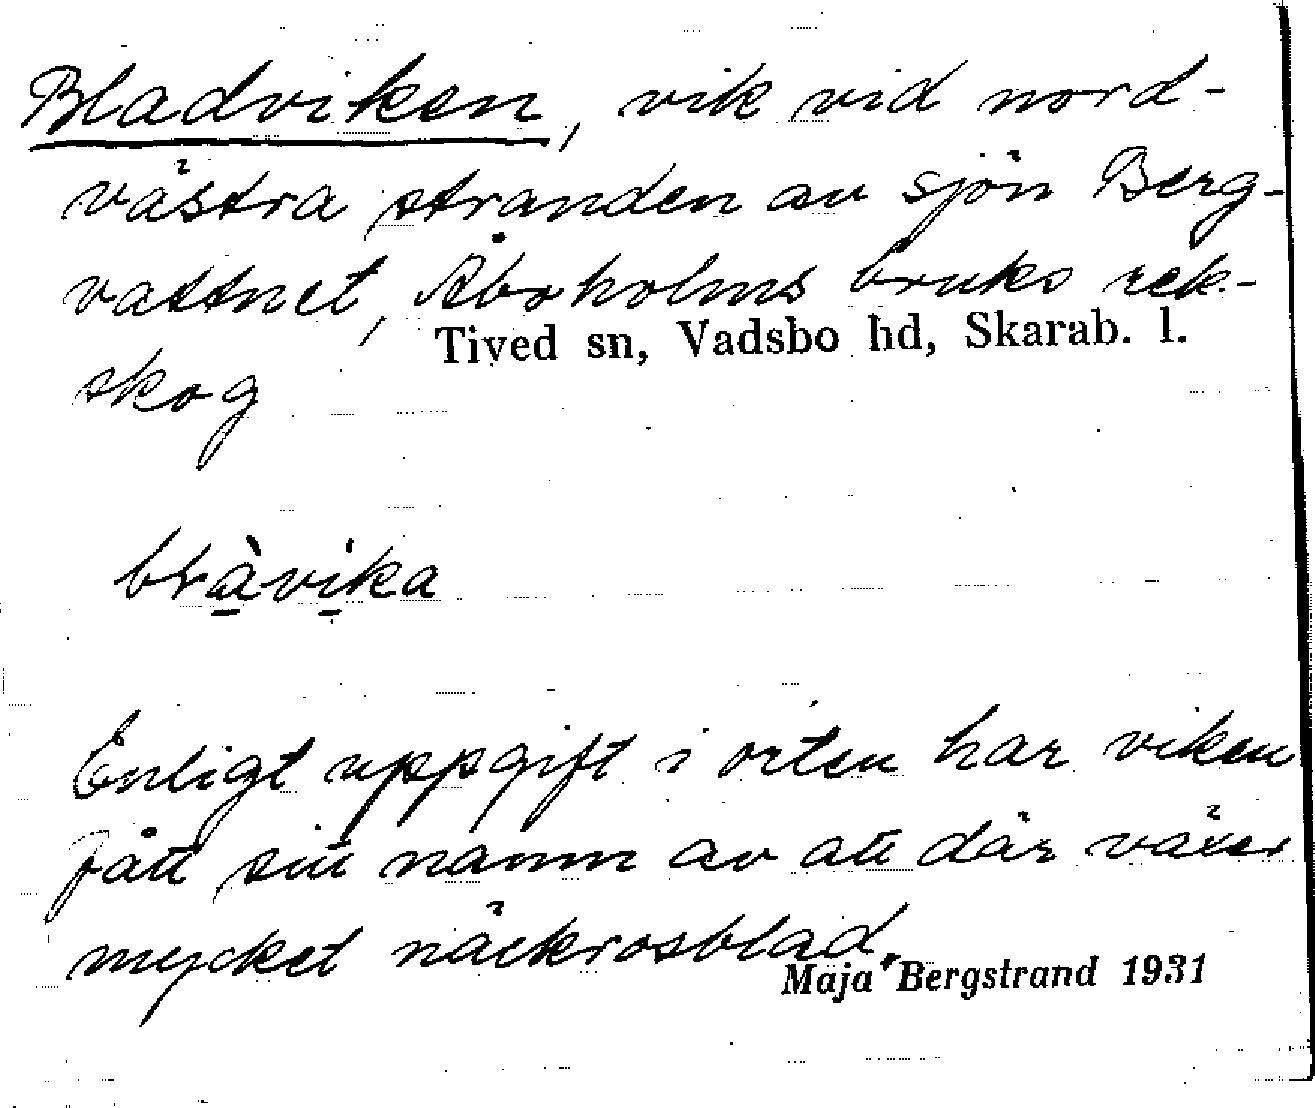 Bladviken, vik vid nord-
västra stranden av sjön Berg-
vattnet, Åboholms bruks rek.-
Tived sn, Vadsbo hd, Skarab. l.
skog
bràvika
Enligt uppgift i orten har viken
fått sitt namn av att där växer
mycket näckrosblad.
Maja Bergstrand 1931